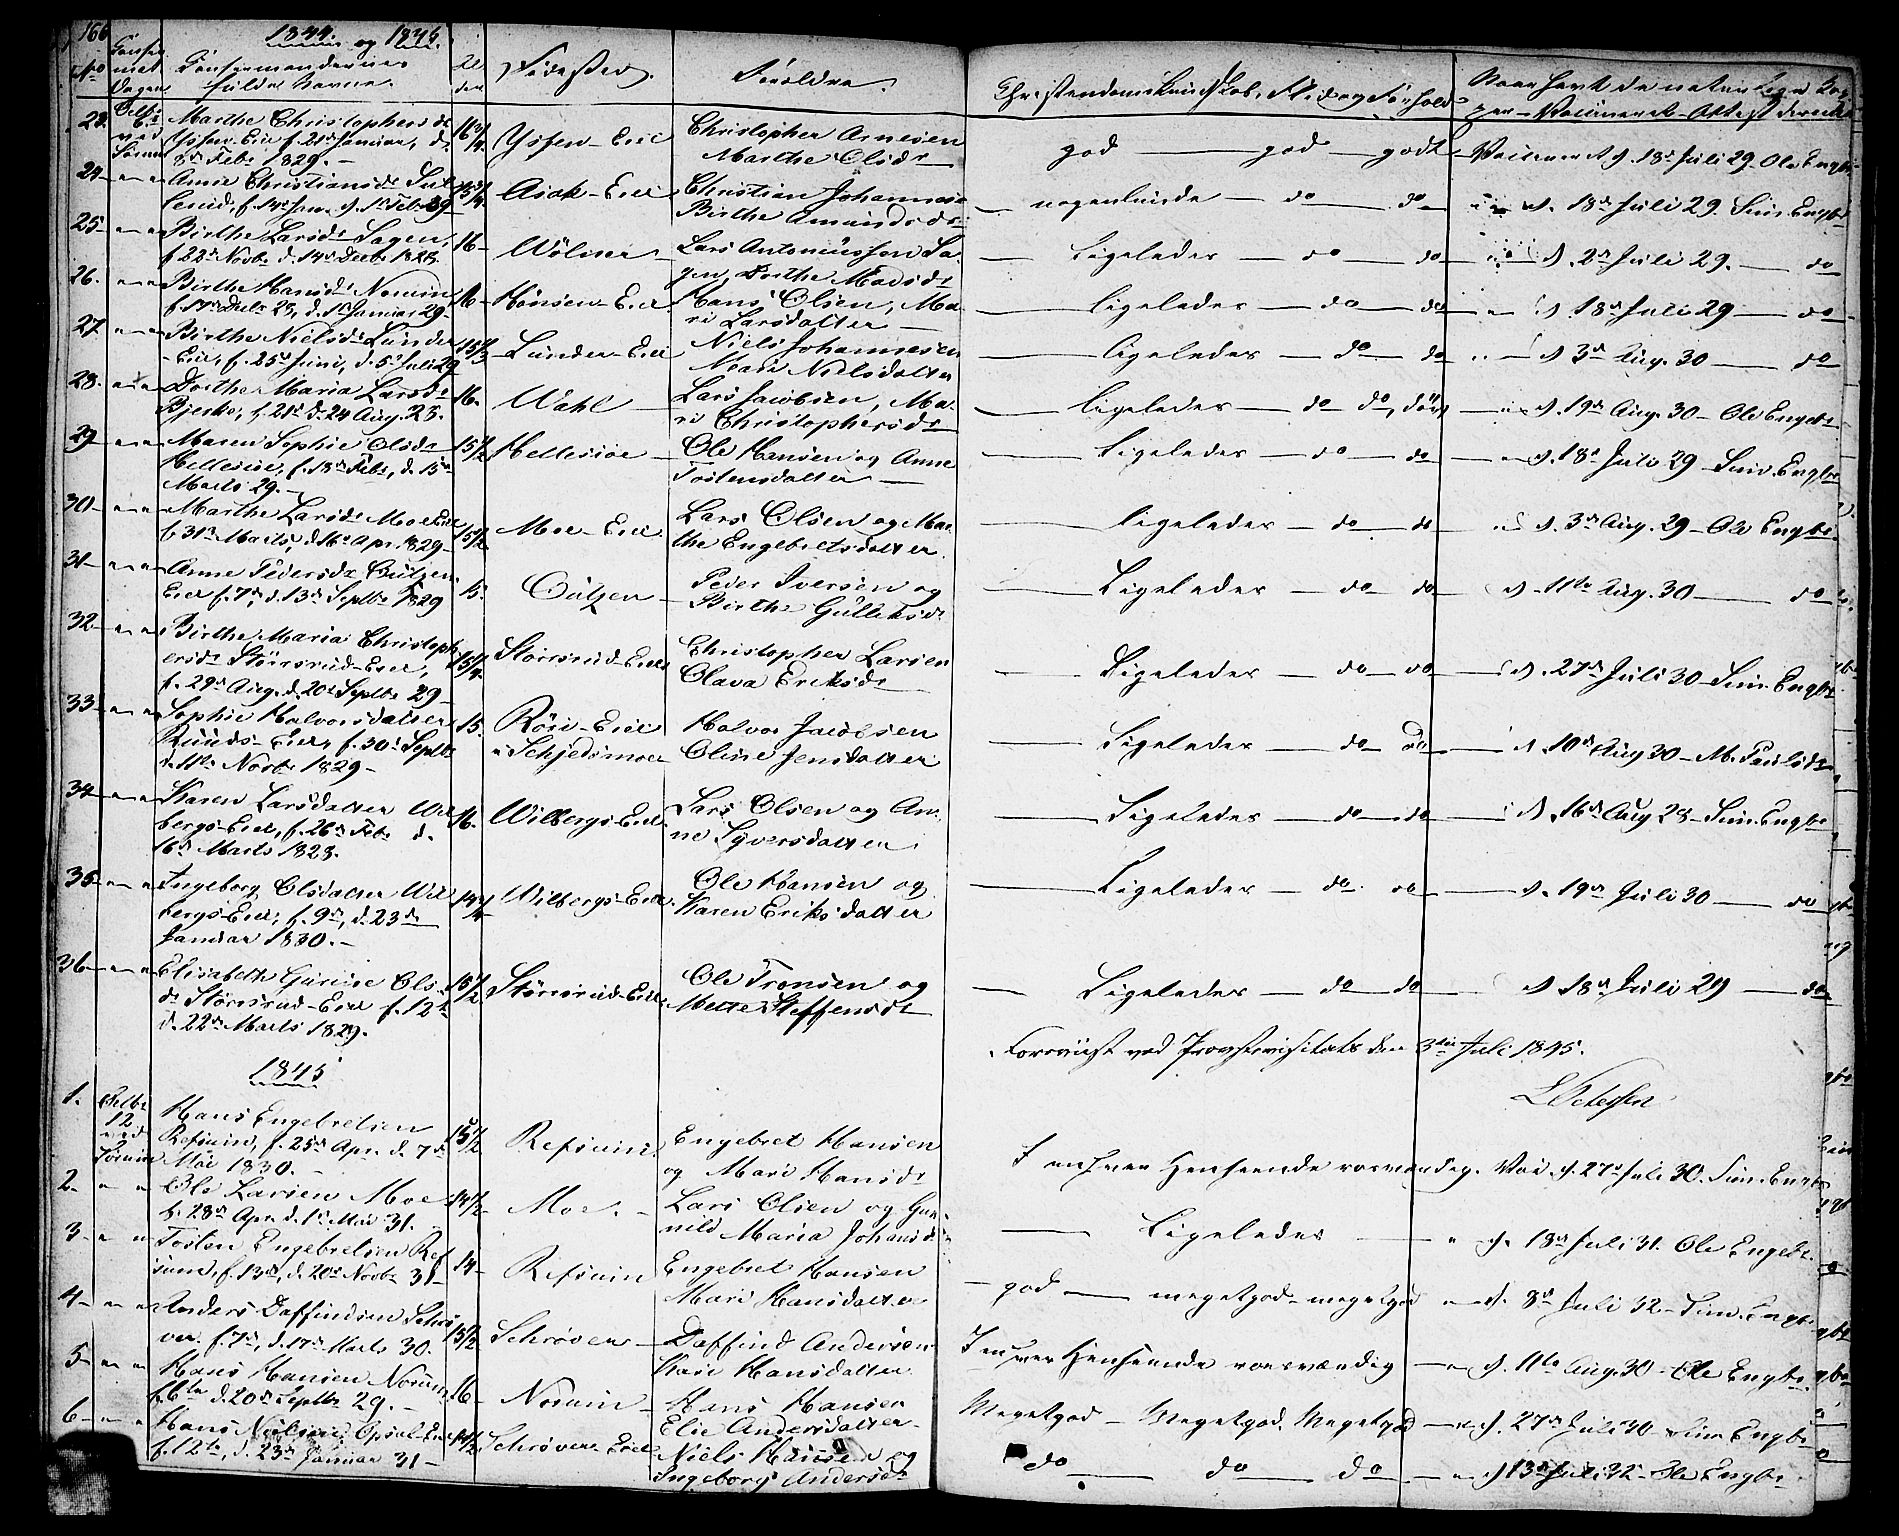 166
1844 og 1845.
No
Confirmandernes
fulde Navne.
Fødested.
Forældre.
Christendoms Kundskab, Flid og Forhold
23.
Marthe Christophersdr
Eie f. 21de Januar, d.
8de Febr 1829. –
16 1/4
Christopher Arnesen
Marthe Olsdr
god — god — godt
Vaccineret d. 18de Juli 29 Ole Engbr
24 – " – "
Anne Christiansdr
f. 14de Jan. d. 1ste Febr 29
15 3/4
Aiak – Eie
Christian Johannesen
Birthe Amundsdr
— nogenlunde — do — do
d. 18de Juli 29. Sim. Engbr
25 – " – "
Birthe Larsdr Hagen,
f. 22de Novbr d. 14de Decbr 1828.
16 –
Wølner
Lars Antoniussen Ha-
gen, Dorthe Madsdr
— Ligeledes — do — do
d. 2de Juli 29. — do
26. – " – "
Birthe Hansdr Norum
d. 1ste Januar 29.
16 –
Hansen – Eie
Hans Olsen, Ma-
ri Larsdatter —
— Ligeledes — do — do
d. 18de Juli 29 — do
27 – " – "
Birthe Nielsdr Lunder
– Eie, f. 25de Juni, d. 5te Juli 29
15 1/3
Lunder – Eie
Niels Johannesen
Mari Nielsdatter
— ligeledes — do — do
d. 3de Aug. 30 — do
28. – " – "
Dorthe Maria Larsdr
Bjerke, f. 21de d. 24 Aug. 28.
16.
Wahl —
Lars Jacobsen, Ma-
ri Christophersdr
— ligeledes — do do,
d. 19de Aug. 30 – Ole Engebr
29 – " – "
Maren Sophie Olsdr
Hellesiøe, f. 18de Febr, d. 15de
Marts 29. –
15 1/2
Hellesiøe —
Ole Hansen og Anne
Tostensdatter —
— Ligeledes — do — do
d. 18de Juli 29 – Sim. Engbr
30 – " – "
Marthe Larsdr Moe Eie
f. 31te Marts, d. 16de Apr. 1829 –
15 1/2
Moe – Eie
Lars Olsen og Mar-
the Engebretsdatter.
— ligeledes — do — do
d. 3de Aug. 29 – Ole Engbr
31 – " – "
Anne Pedersdr
Eie f. 7de, d. 13de Septbr 1829
15.
Peder Iversen og
Birthe Gulliksdr
— Ligeledes — do — do
d. 11te Aug. 30 — do
32 – " – "
Birthe Maria Christoph-
ersdr Størsrud – Eie,
f. 29de Aug. d. 20de Septbr 29 –
15 1/4
Størsrud – Eie
Christopher Larsen
Olava Eriksdr
— Ligeledes — do — do
d. 27de Juli 30 – Sim. Engbr
33 – " – "
Sophie Halvorsdatter
Ruuds – Eie, f. 30te Septbr
d. 11te Novbr 1829 –
15.
Røsi – Eie
i Schjedsmoe
Halvor Jacobsen
Oline Jensdatter
— Ligeledes — do — do
d. 10de Aug 30 – M. Paulsdr
34 – " – "
Karen Larsdatter Wil-
bergs – Eie, f. 26de Febr d.
16de Marts 1828.
16.
Wilbergs – Eie
Lars Olsen og An-
ne Syversdatter.
— Ligeledes — do — do
d. 16de Aug 28 – Sim. Engbr
35 – " – "
Ingeborg Olsdatter Wil-
bergs – Eie, f. 9de, d. 23de
Januar 1830. –
14 3/4
Wilbergs – Eie
Ole Hansen og
Karen Eriksdatter
— Ligeledes — do — do
d. 19de Juli 30 — do
36 – " – "
Elisabeth Gurine Ols-
dr Størsrud – Eie f. 12te
d. 22de Marts 1829.
15 1/2
Størsrud – Eie
Ole Tronsen og
Mette Steffensdr
— Ligeledes — do — do
d. 18de Juli 29 — do
Forevist ved Provstevisitats den 3die Juli 1845.
1845
1.
12
ved
Sørum
Hans Engebretsen
Refsum, f. 25de Apr. d. 7de
Mai 1830. –
15 1/2
Refsum
Engebret Hansen
og Mari Hansdr
I enhver Henseende roesværdig.
Vac. d. 27de Juli 30. Sim. Engbr
2. " "
Ole Larsen Moe
f. 28de Apr. d. 1ste Mai 31.
14 1/2
Moe. –
Lars Olsen og Gun-
nild Maria Johansdr
— Ligeledes —
" d. 18de Juli 31. Ole Engebr.
3 – " "
Tosten Engebretsen Ref-
sum, f. 13de, d. 20de Novbr 31 –
14 –
Refsum
Engebret Hansen
Mari Hansdatter
– god — megetgod – megetgod
d. 8de Juli 32 – Sim. Engbr
4 – " – "
Anders Daffindsen Schrø-
ver f. 7de, d. 17de Marts 30.
15 1/2
Schrøver –
Daffind Andersen
Kari Hansdatter
I enhver Henseende roesværdig
d. 11te Aug. 30 – Ole Engbr.
5 – " – "
Hans Hansen Norum,
f. 6te d. 20de Septbr 29. –
16 –
Norum –
Hans Hansen
Elie Andersdatter
Megetgod – Megetgod. Megetgod
d. 27de Juli 30 – Sim Engbr
6 – " – "
Hans Nielsen Opsal – Eie
f. 12te, d. 23de Januar 31 –
14 1/2
Schrøver – Eie
Niels Hansen og
Ingeborg Andersdr
do — do — do
d. 13de Juli 32 – Ole Engbr.